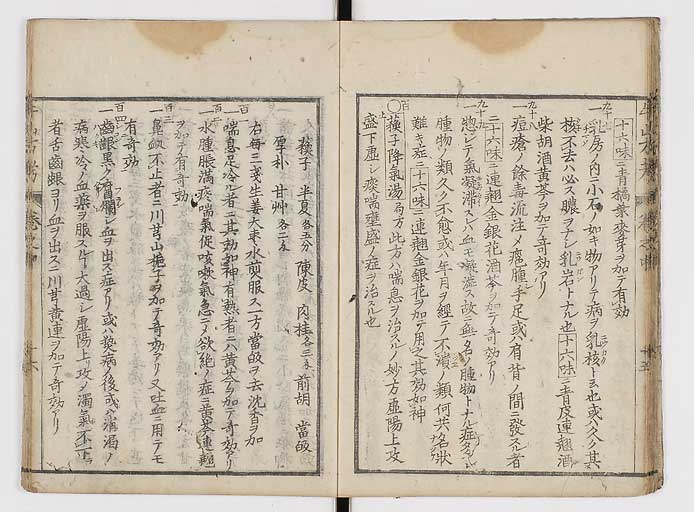 十六味ニ青橘葉麥芽ヲ加テ有効
九十七
一乳房ノ内ニ小石ノ如キ物アリテ病ヲ乳核ト云也或ハ久ク其
核不去ハ必ス膿ヲナシ乳岩トナル也十六味ニ青皮連翹酒
柴胡酒黄芩ヲ加テ奇効アリ
九十八
一痘瘡ノ餘毒流注ノ癰腫手足或ハ背ノ間ニ發スル者
二十六味ニ連翹金銀花酒芩ヲ加テ奇効アリ
九十九
一惣シテ氣凝滞スレハ血モ凝滞ス故ニ無名ノ腫物トナル症
腫物ノ類久ク不愈或ハ年月ヲ經テ不潰ノ類何共名狀
難キ症ニ十六味ニ連翹金銀花ヲ加テ用之其効如神
百
○蘓子降氣湯局方此方ハ喘息ヲ治スルノ妙方虚陽上攻
上盛下虚シ痰喘壅盛ノ症ヲ治スル也
蘓子 半夏各五分 陳皮 肉桂各三分 前胡 當皈
厚朴 甘艸各二分
右毎三戔生姜大枣水煎服ス一方當皈ヲ去沈香ヲ加
百一
一喘息足冷ル者ニ其効如神有熱者ニハ黄芩ヲ加テ奇効アリ
百二
一水腫脹滿痰喘氣促咳嗽氣急ニテ欲絶ノ症ニ黄芩連翹
ヲ加テ有奇効
百三
一鼻衂不止者ニ川芎山梔子ヲ加テ奇効アリ又吐血ニ用テモ
有奇効
百四
一齒齦黒ク腐爛シ血ヲ出ス症アリ或ハ病ノ後或ハ消渇ノ
病寒冷ノ藥ヲ服スルヿ大過シ虚陽上リ攻ノ濁氣不下
者舌齒齦ヨリ血ヲ出スニ川芎黄連ヲ加テ奇効アリ